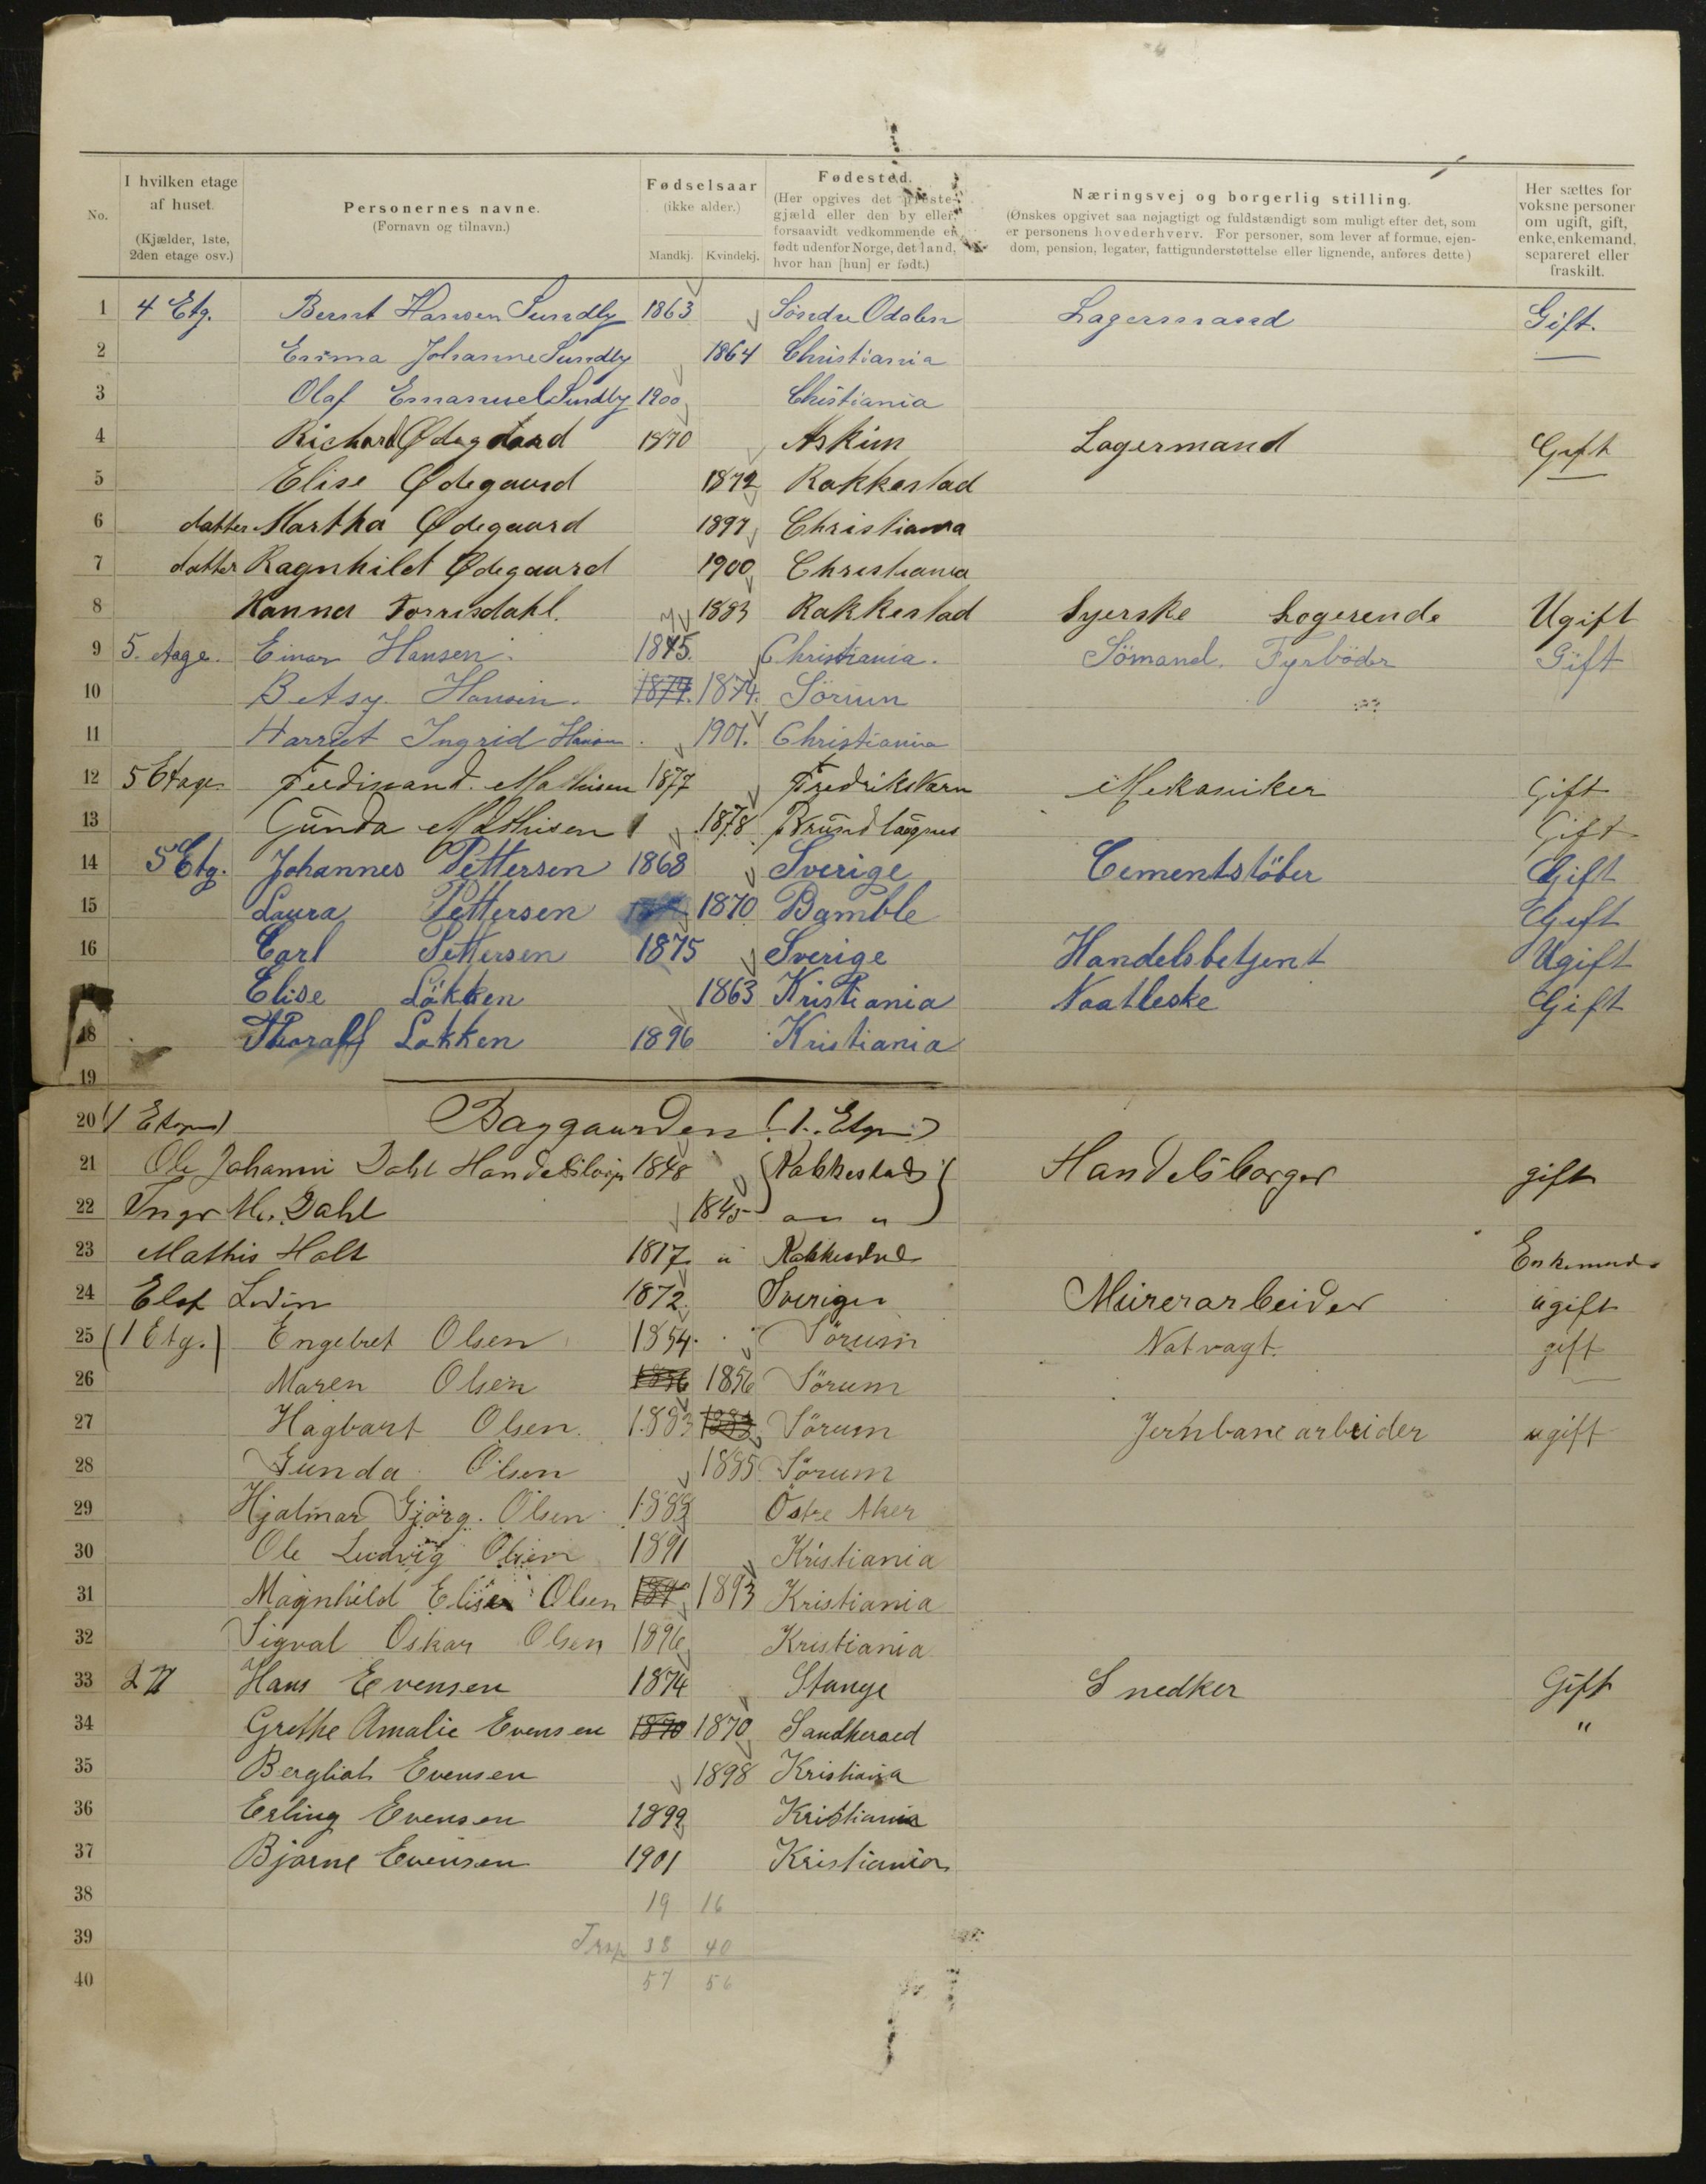 No.
I hvilken etage af huset. (Kjælder, 1ste, 2den etage osv.)
Personernes navne. (Fornavn og tilnavn.)
Fødselsaar (ikke alder.) Mandkj. Kvindekj.
Fødested. (Her opgives det præstegjæld eller den by eller, forsaavidt vedkommende er født udenfor Norge, det land, hvor han [hun] er født.)
Næringsvej og borgerlig stilling. (Ønskes opgivet saa nøjagtigt og fuldstændigt som muligt efter det, som er personens hovederhverv. For personer, som lever af formue, ejendom, pension, legater, fattigunderstøttelse eller lignende, anføres dette.)
Her sættes for voksne personer om ugift, gift, enke, enkemand, separeret eller fraskilt.
1 4 Etg. Bernt Hansen Sundby 1863 Söndre Odalen Lagermand Gift.
2 Emma Johanne Sundby 1864 Christiania
3 Olaf Emanuel Sundby 1900 Christiania
4 Richard Ødegaard 1870 Askim Lagermand Gift
5 Elise Ødegaard 1872 Rakkestad
6 datter Martha Ødegaard 1897 Christiania
7 datter Ragnhild Ødegaard 1900 Christiania
8 Hanna 1883 Rakkestad Syerske Logerende Ugift
9 5. Etage. Einar Hansen. 1875. Christiania. Sömand. Fyrböder Gift
10 Betsy Hansen. 1874. Sörum
11 Harriet Ingrid Hansen 1901. Christiania
12 5 Etage Ferdinand Mathisen 1877 Fredriksværn Mekaniker Gift
13 Gunda Mathisen 1878 Brundlagnes Gift
14 5 Etg. Johannes Pettersen 1868 Sverige Cementstöber Gift
15 Laura Pettersen 1870 Bamble Gift
16 Carl Pettersen 1875 Sverige Handelsbetjent Ugift
Elise Lökken 1863 Kristiania Naatleske Gift
18 Thoralf Lökken 1896 Kristiania
19
20 (1 Etagen) Baggaarden (1. Etgn)
21 Ole Johanni Dahl Handelsborger 1848 Rakkestad Handelsborger gift
22 Inger M. Dahl 1845
23 Mathis Holt 1817 Rakkestad Enkemand
24 Elof Ledin 1872. Sverige Murerarbeider ugift
25 (1 Etg.) Engebret Olsen 1854. Sörum Natvagt. gift
26 Maren Olsen 1856 1856 Sörum
27 Hagbart Olsen. 1883 1883 Sörum Jernbanearbeider ugift
28 Gunda Olsen 1885 Sörum
29 Hjalmar Gjörg. Olsen 1889 Östre Aker
30 Ole Ludvig Olsen 1891 Kristiania
31 Magnhild Elise Olsen 1893 Kristiania
32 Sigval Oskar Olsen 1896 Kristiania
33 2 Hans Evensen 1874 Stange Snedker Gift
34 Grethe Amalie Evensen 1870 1870 Sandheraed "
35 Bergliot Evensen 1898 Kristiania
36 Erling Evensen 1899 Kristiania
37 Bjarne Evensen 1901 Kristiania
38 19 16
39 Trsp 38 40
40 57 56